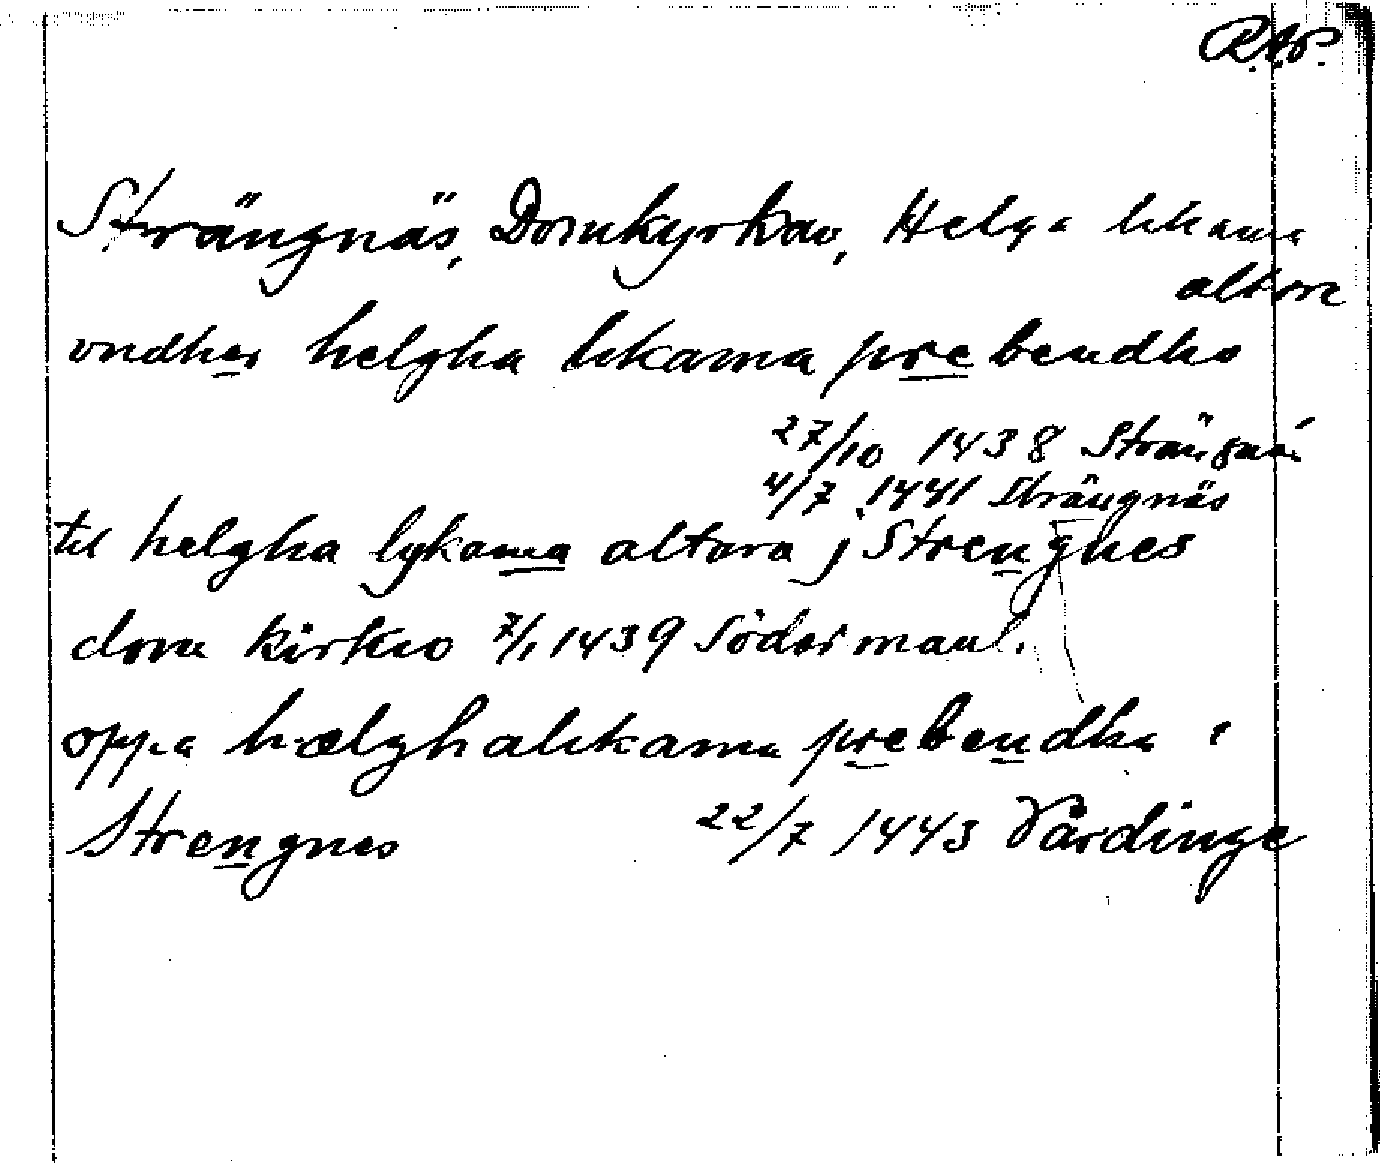 R.A.P.
Strängnäs, Domkyrkan, Helga lekama
altare
vndher helgha likama prebendho
27/10 1438 Strängnäs
4/7 1441 Strängnäs
til helgha lykama altara j Strengnes
dom kirkio 7/1 1439 Söderman l.
oppa hælghalikama prebendha i
Strengnes 22/7 1443 Vårdinge